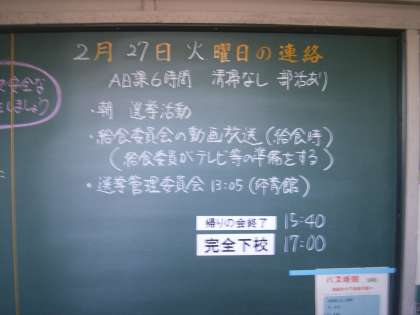 2月 27日 火曜日の連絡
A日課6時間 清掃なし 部活あり
・朝 選挙活動
・給食委員会の動画放送(給食時)
(給食委員がテレビ等の準備をする)
・選挙管理委員会 13:05 (体育館)
帰りの会終了 15:40
完全下校 17:00
安全な
しましょう
バス時刻